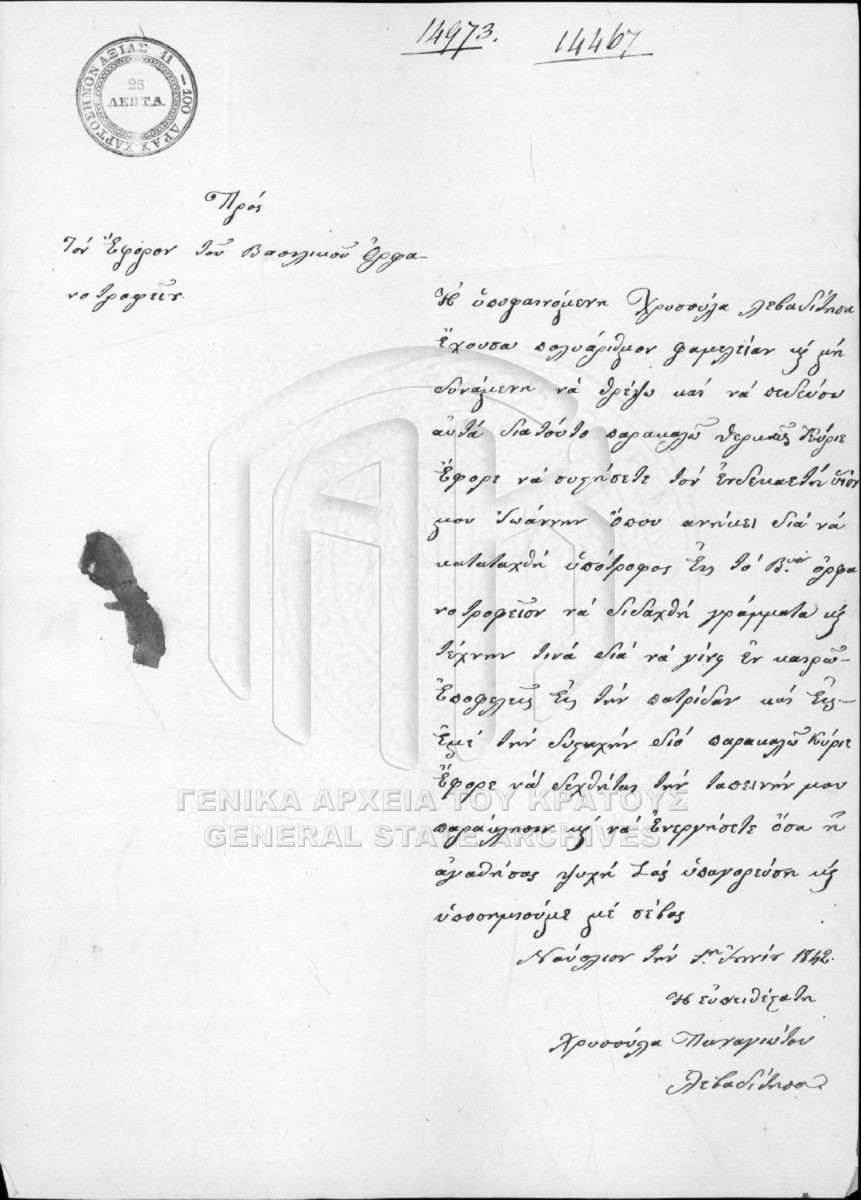 14973. 14467
ΧΑΡΤΟΣΗΜΟΝ ΑΞΙΑΣ 11-100 ΔΡΑΧ
25
ΛΕΠΤΑ.
Πρός
Τόν Ἔφορον τοῦ Βασιλικοῦ Ὀρφα-
νοτροφείου.
Ἡ ὑποφαινόμενη Χρυσούλα Λεβαδίτησα
ἔχουσα πολυάριθμον φαμελείαν καί μή
δυνάμενη νά θρέψω καί νά πεδεύσω
αὐτά διατοῦτο παρακαλῶ θερμῶς Κύριε
Ἔφορε νά συστήσετε τόν ἑνδεκαετῆ υἱόν
μου Ἰωάννην ὅπου ανήκει διά νά
καταταχθῆ ὑπότροφος εἰς τό Β.κόν ὀρφα
νοτροφεῖον νά διδαχθῆ γράμματα καί
τέχνην τινά διά νά γίνῃ ἐν καιρῶ
ἐποφελεῖς εἰς τήν πατρίδαν καί εἰς
ἐμέ τήν δυστυχήν διό παρακαλῶ Κύριε
Ἔφορε νά δεχθῆτε τήν ταπεινήν μου
παράκλησιν καί νά ἐνεργήσετε ὅσα ἡ
ἀγαθήσας ψυχή Σάς ὑπαγορεύση καί
ὑποσημιοῦμε μέ σέβας
Ναύπλιον τήν 1ην Ἰουνίου 1842.
Ἡ εὐπειθέστατη
Χρυσούλα Παναγιώτου
Λεβαδίτησα
ΓΕΝΙΚΑ ΑΡΧΕΙΑ ΤΟΥ ΚΡΑΤΟΥΣ
GENERAL STATE ARCHIVES